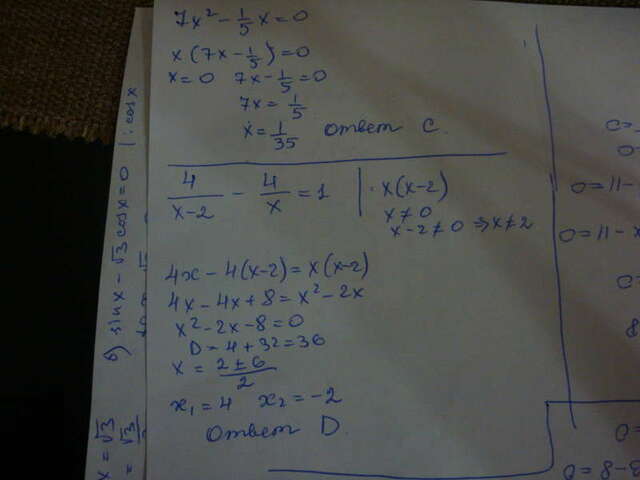 7x² - 1/5 x = 0
x (7x - 1/5) = 0
x = 0   7x - 1/5 = 0
7x = 1/5
x = 1/35   ответ C.
4/(x-2) - 4/x = 1 | · x(x-2)
x ≠ 0
x-2 ≠ 0 ⇒ x ≠ 2
4x - 4(x-2) = x(x-2)
4x - 4x + 8 = x² - 2x
x² - 2x - 8 = 0
D = 4 + 32 = 36
x = (2 ± 6)/2
x₁ = 4   x₂ = -2
ответ D.
б) sin x - √3 cos x = 0 | : cos x
x = √3